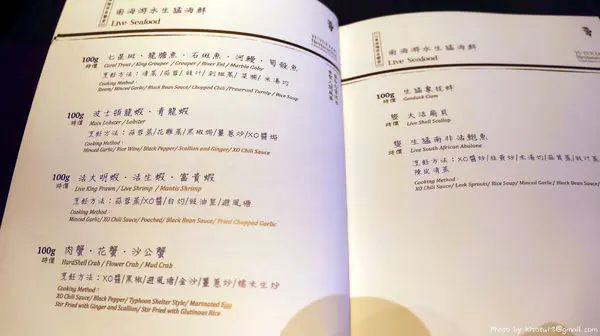 南海游水生猛海鮮
Live Seafood
100g
時價
七星斑・龍膽魚・石斑魚・河鰻・筍殼魚
Coral Trout / King Grouper / Grouper / River Eel / Marble Goby
烹飪方法：清蒸/蒜蓉/豉汁/剁椒蒸/菜脯/米湯灼
Cooking Method :
Steam/ Minced Garlic/ Black Bean Sauce/ Chopped Chili /Preserved Turnip / Rice Soup
100g
時價
波士頓龍蝦・青龍蝦
Main Lobster / Lobster
烹飪方法：蒜蓉蒸/花雕蒸/黑椒焗/薑蔥炒/XO醬焗
Cooking Method :
Minced Garlic/ Rice Wine/ Black Pepper/ Scallion and Ginger/ XO Chili Sauce
100g
時價
活大明蝦・活生蝦・富貴蝦
Live King Prawn / Live Shrimp / Mantis Shrimp
烹飪方法：蒜蓉蒸/XO醬/白灼/豉油皇/避風塘
Cooking Method :
Minced Garlic/ XO Chili Sauce/ Poached/ Black Bean Sauce/ Fried Chopped Garlic
100g
時價
肉蟹・花蟹・沙公蟹
HardShell Crab / Flower Crab / Mud Crab
烹飪方法：XO醬/黑椒/避風塘/金沙/薑蔥炒/糯米生炒
Cooking Method :
XO Chili Sauce/ Black Pepper/ Typhoon Shelter Style/ Marinated Egg
Stir Fried with Ginger and Scallion/ Stir Fried with Glutinous Rice
南海游水生猛海鮮
Live Seafood
100g
時價
生猛象拔蚌
Geoduck Clam
隻
時價
大活扇貝
Live Shell Scallop
隻
時價
生猛南非活鮑魚
Live South African Abalone
烹飪方法：XO醬炒/韭黃炒/米湯灼/蒜茸蒸/豉汁蒸
陳皮清蒸
Cooking Method :
XO Chili Sauce/ Leek Sprouts/ Rice Soup/ Minced Garlic/ Black Bean Sauce/
Photo by